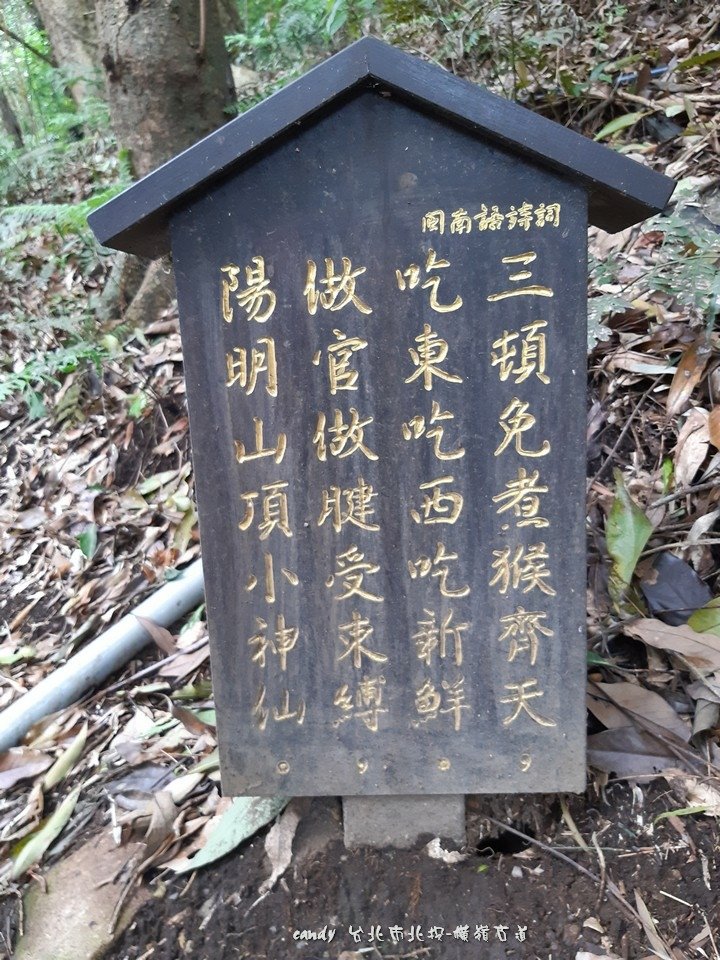 閩南語詩詞
三頓免煮猴齊天，
吃東吃西吃新鮮。
做官做腱受束縛，
陽明山頂小神仙。
candy 台北市北投-橫嶺古道